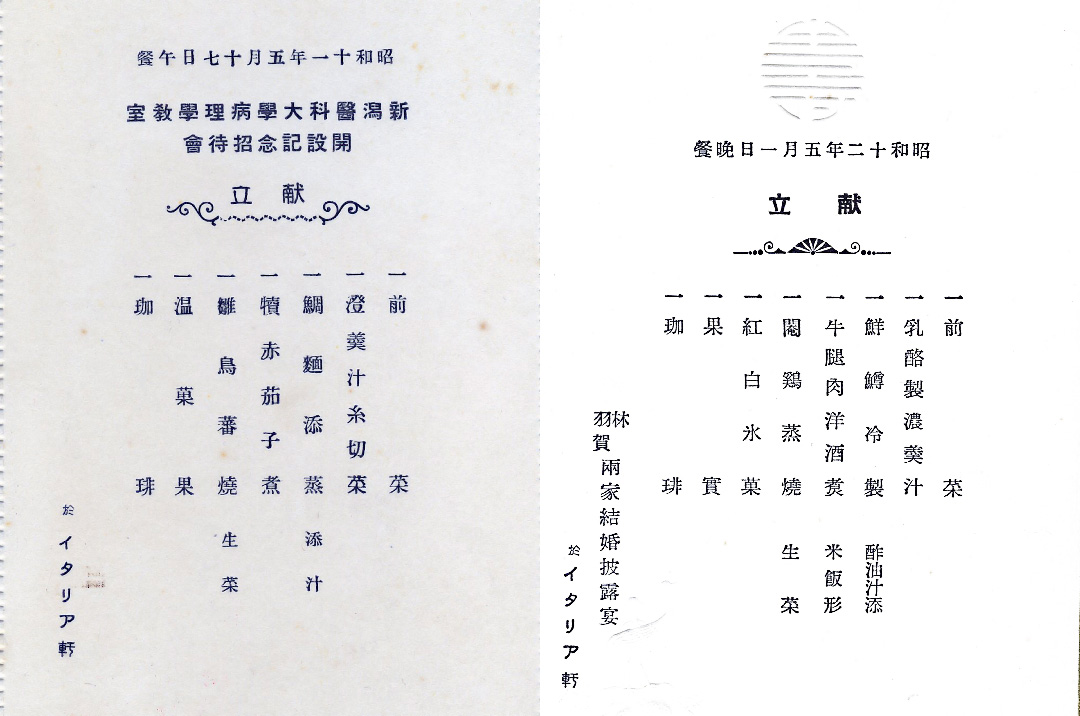 昭和十一年五月十七日午餐
新潟醫科大學病理學敎室
開設記念招待會
献立
一前菜
一澄羹汁糸切菜
一鯛麵添蒸 添汁
一犢赤茄子煮
一雛鳥蕃燒 生菜
一温菓果
一珈琲
於イタリア軒
昭和十二年五月一日晩餐
献立
一前菜
一乳酪製濃羹汁
一鮮鱒冷製 酢油汁添
一牛腿肉洋酒煮 米飯形
一閹鶏蒸燒 生菜
一紅白氷菓
一果實
一珈琲
林
羽賀
兩家結婚披露宴
於イタリア軒